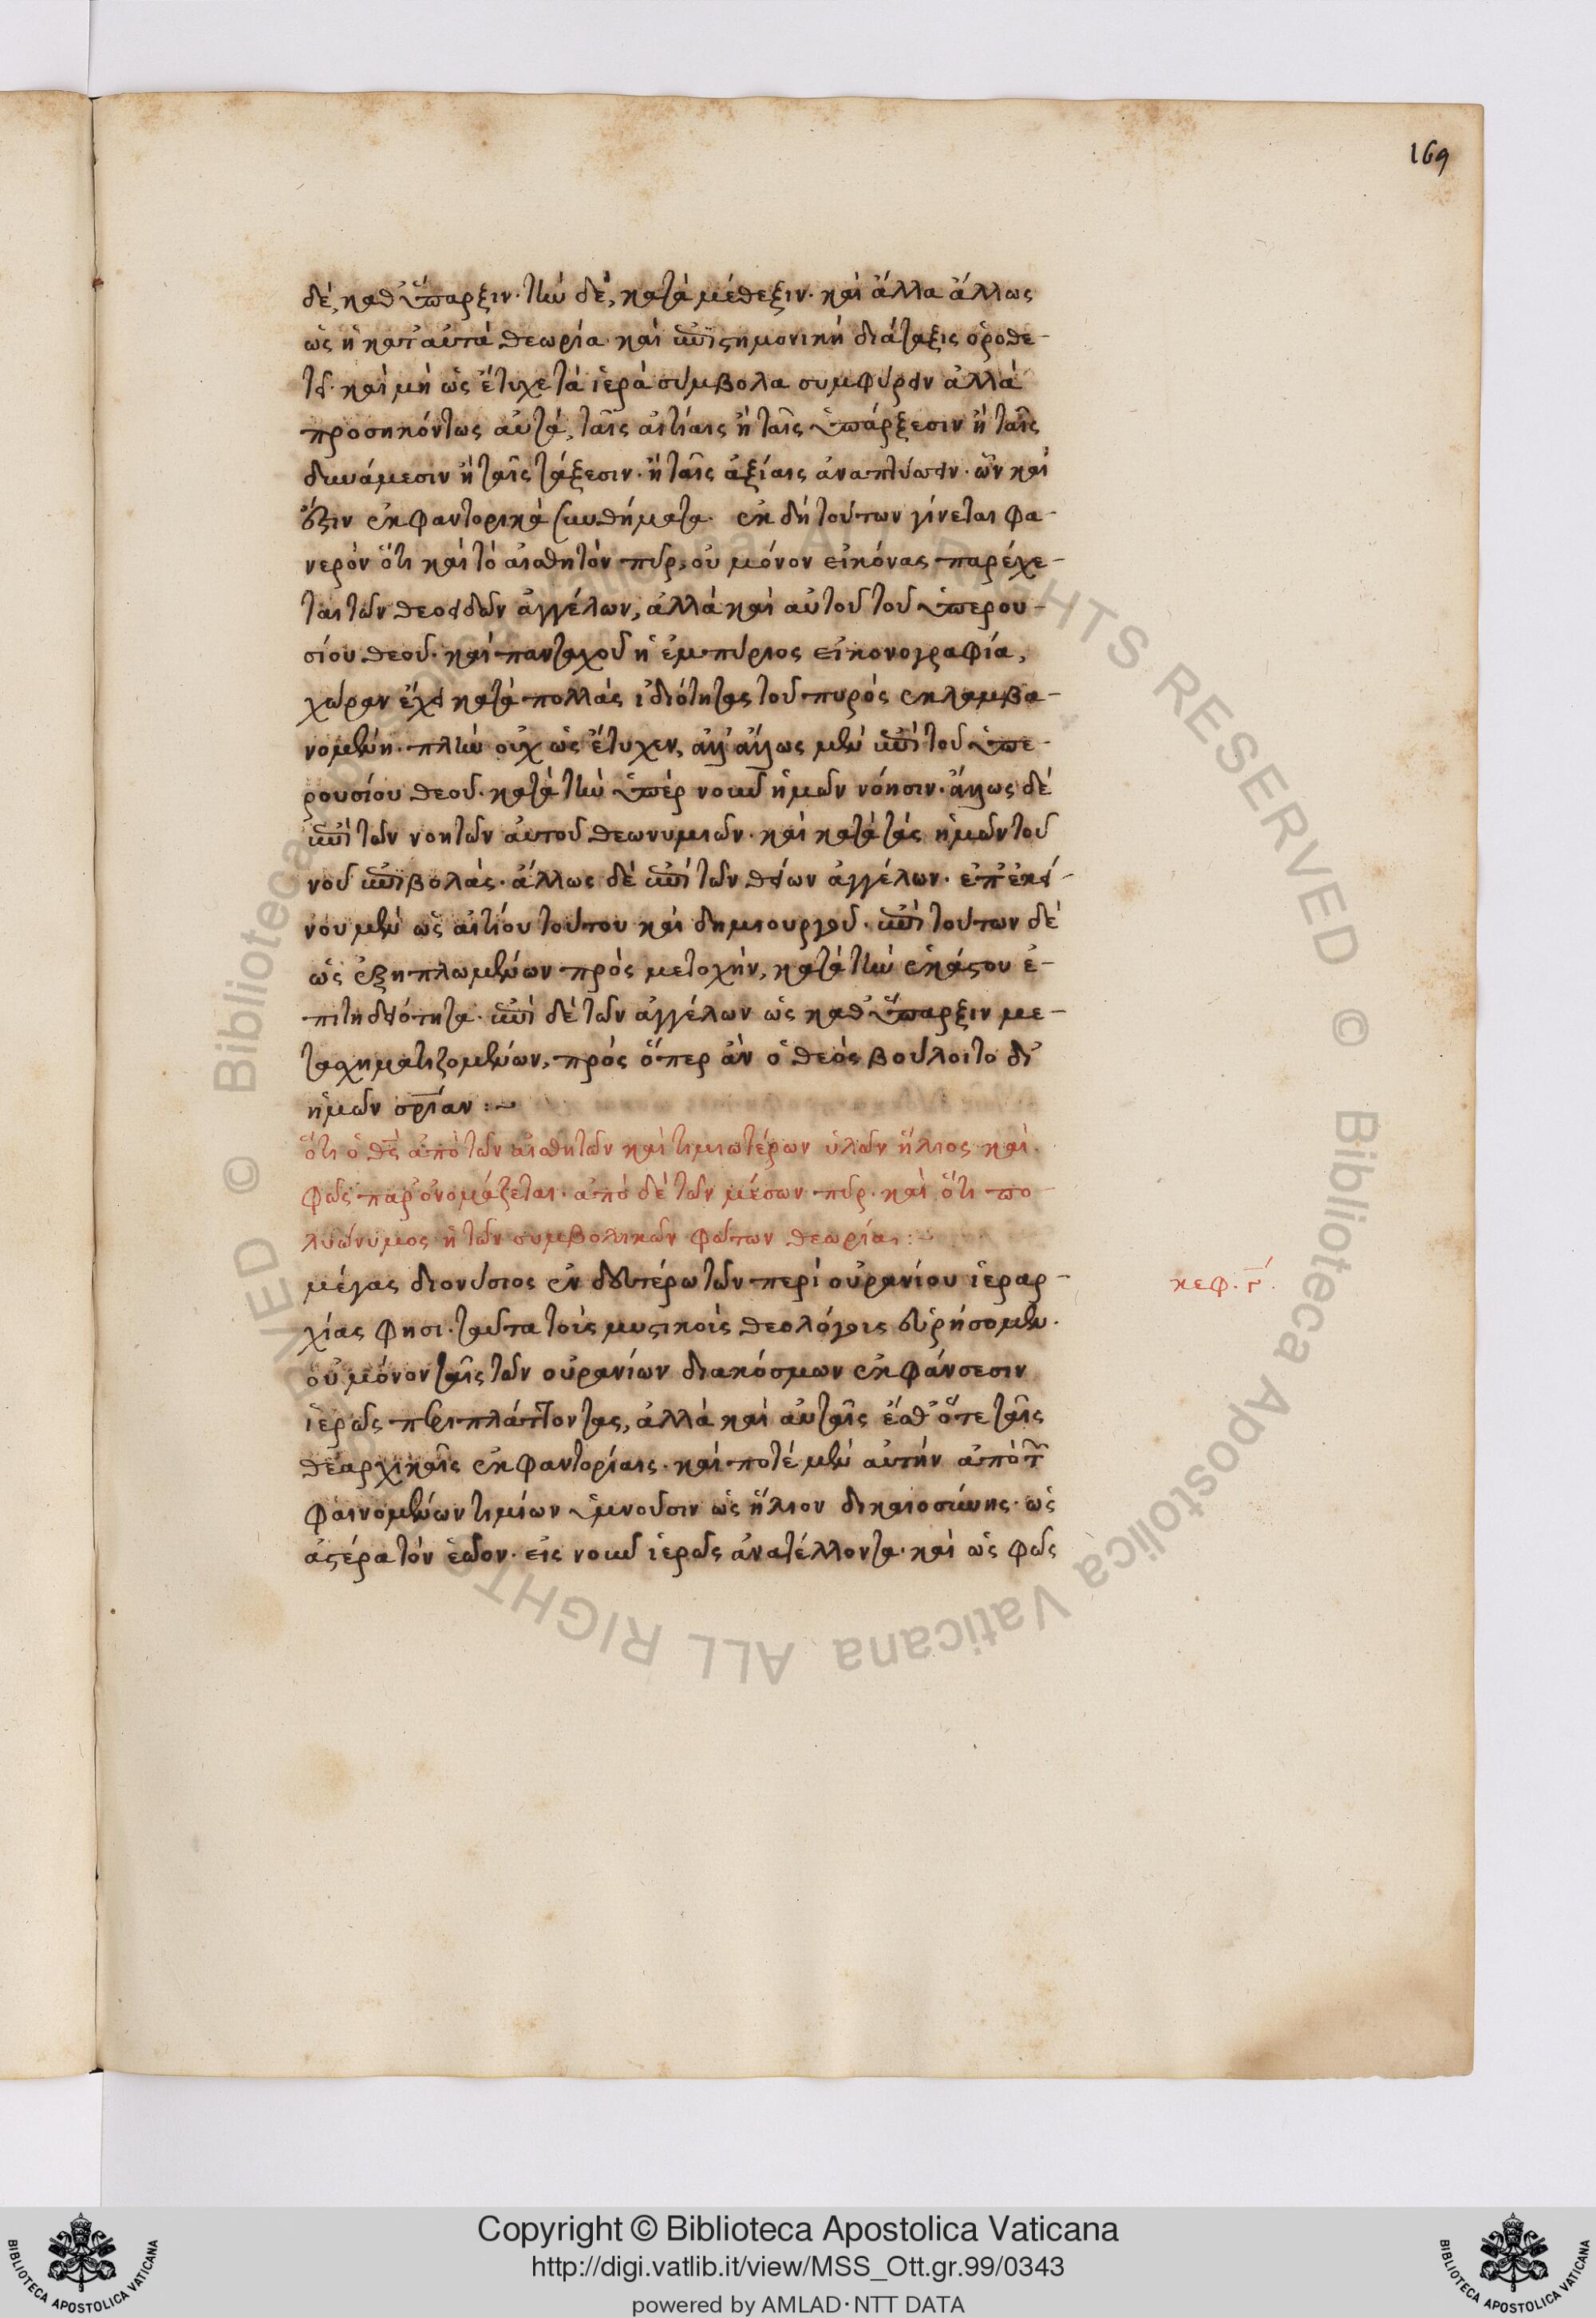 169
δέ, καθ' ὕπαρξιν· τὴν δέ, κατὰ μέθεξιν· καὶ ἄλλα ἄλλως
ὡς ἡ κατ' αὐτὰ θεωρία· καὶ ἐπιστημονικὴ διάταξις ὁροθε-
τεῖ· καὶ μὴ ὡς ἔτυχε τὰ ἱερὰ σύμβολα συμφύρειν ἀλλὰ
προσηκόντως αὐτά, ταῖς αἰτίαις ἢ ταῖς ὑπάρξεσιν ἢ ταῖς
δυνάμεσιν ἢ ταῖς τάξεσιν· ἢ ταῖς ἀξίαις ἀναπτύσσειν· ὧν καὶ
εἰσὶν ἐκφαντορικὰ συνθήματα· ἐκ δὴ τούτων γίνεται φα-
νερὸν ὅτι καὶ τὸ αἰσθητὸν πῦρ, οὐ μόνον εἰκόνας παρέχε-
ται τῶν θεοειδῶν ἀγγέλων, ἀλλὰ καὶ αὐτοῦ τοῦ ὑπερου-
σίου θεοῦ· καὶ πανταχοῦ ἡ ἐμπύριος εἰκονογραφία,
χώραν ἔχει κατὰ πολλὰς ἰδιότητας τοῦ πυρὸς ἐκλαμβα-
νομένη· πλὴν οὐχ ὡς ἔτυχεν, ἀλλ' ἄλλως μὲν ἐπὶ τοῦ ὑπε-
ρουσίου θεοῦ· κατὰ τὴν ὑπὲρ νοῦν ἡμῶν νόησιν· ἄλλως δὲ
ἐπὶ τῶν νοητῶν αὐτοῦ θεωνυμιῶν· καὶ κατὰ τὰς ἡμῶν τοῦ
νοῦ ἐπιβολάς· ἄλλως δὲ ἐπὶ τῶν θείων ἀγγέλων· ἐπ' ἐκεί-
νου μὲν ὡς αἰτίου τούτου καὶ δημιουργοῦ· ἐπὶ τούτων δὲ
ὡς ἐξηπλωμένων πρὸς μετοχήν, κατὰ τὴν ἑκάστου ἐ-
πιτηδειότητα· ἐπὶ δὲ τῶν ἀγγέλων ὡς καθ' ὕπαρξιν με-
τασχηματιζομένων, πρὸς ὅπερ ἂν ὁ θεὸς βούλοιτο δι'
ἡμῶν σρίαν :~
ὅτι ὁ θς ἀπὸ τῶν αἰσθητῶν καὶ τιμιωτέρων ὑλῶν ἥλιος καὶ
φῶς παρονομάζεται· ἀπὸ δὲ τῶν μέσων πῦρ· καὶ ὅτι πο-
λυώνυμος ἡ τῶν συμβολικῶν φώτων θεωρία :~
μέγας διονύσιος ἐν δευτέρω τῶν περὶ οὐρανίου ἱεραρ-
κεφ. γ'.
χίας φησι· ταῦτα τοὺς μυστικοὺς θεολόγους εὑρήσομεν·
οὐ μόνον ταῖς τῶν οὐρανίων διακόσμων ἐκφάνσεσιν
ἱερῶς περιπλάττοντας, ἀλλὰ καὶ αὐταῖς ἔσθ' ὅτε ταῖς
θεαρχικαῖς ἐκφαντορίαις· καὶ ποτὲ μὲν αὐτὴν ἀπὸ τῶν
φαινομένων τιμίων ὑμνοῦσιν ὡς ἥλιον δικαιοσύνης· ὡς
ἀστέρα τὸν ἑῶον· εἰς νοῦν ἱερῶς ἀνατέλλοντα· καὶ ὡς φῶς
© Biblioteca Apostolica Vaticana ALL RIGHTS RESERVED
Copyright © Biblioteca Apostolica Vaticana
http://digi.vatlib.it/view/MSS_Ott.gr.99/0343
powered by AMLAD·NTT DATA
BIBLIOTECA APOSTOLICA VATICANA
BIBLIOTECA APOSTOLICA VATICANA